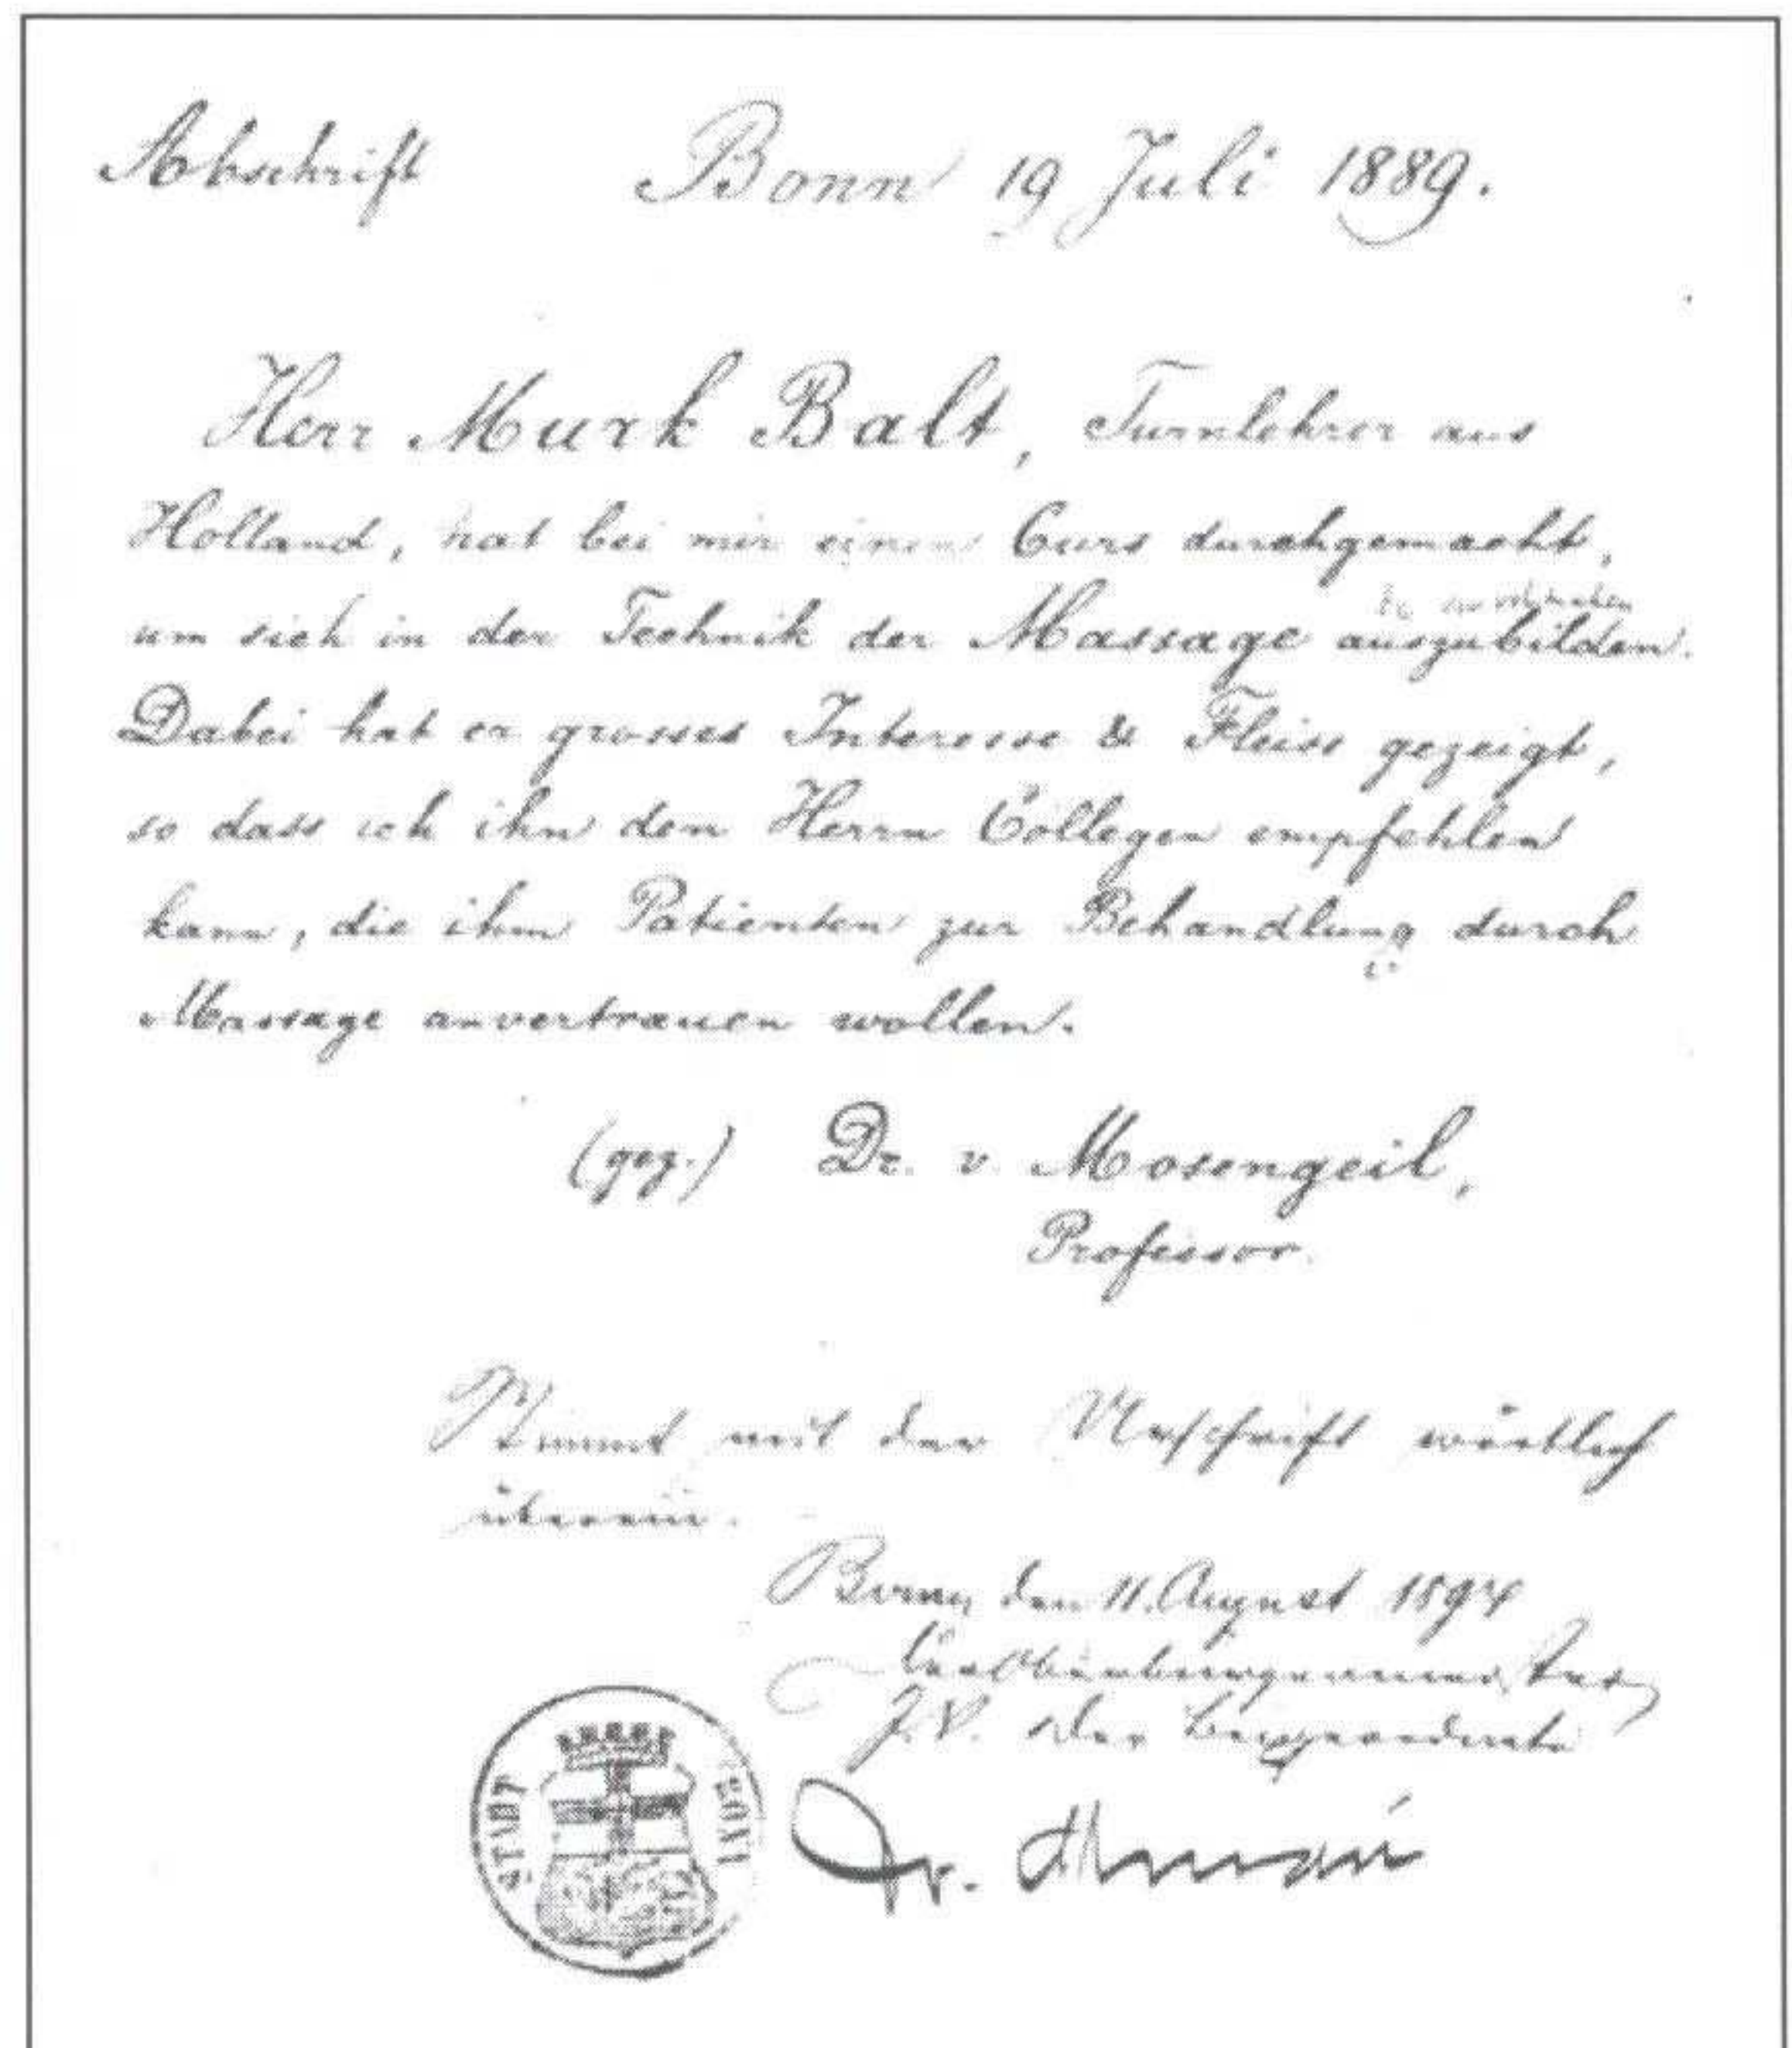 Abschrift Bonn 19 Juli 1889.
Herr Murk Balt, Turnlehrer aus
Holland, hat bei mir einen Curs durchgemacht,
um sich in der Technik der Massage auszubilden.
Dabei hat er grosses Interesse & Fleiss gezeigt,
so dass ich ihn den Herrn Collegen empfehlen
kann, die ihm Patienten zur Behandlung durch
Massage anvertrauen wollen.
(gez.) Dr. v. Mosengeil,
Professor.
Stimmt mit der Urschrift wörtlich
überein.
Bonn, den 11. August 1894
J.V. Der Beigeordnete
Dr.
STADT BONN